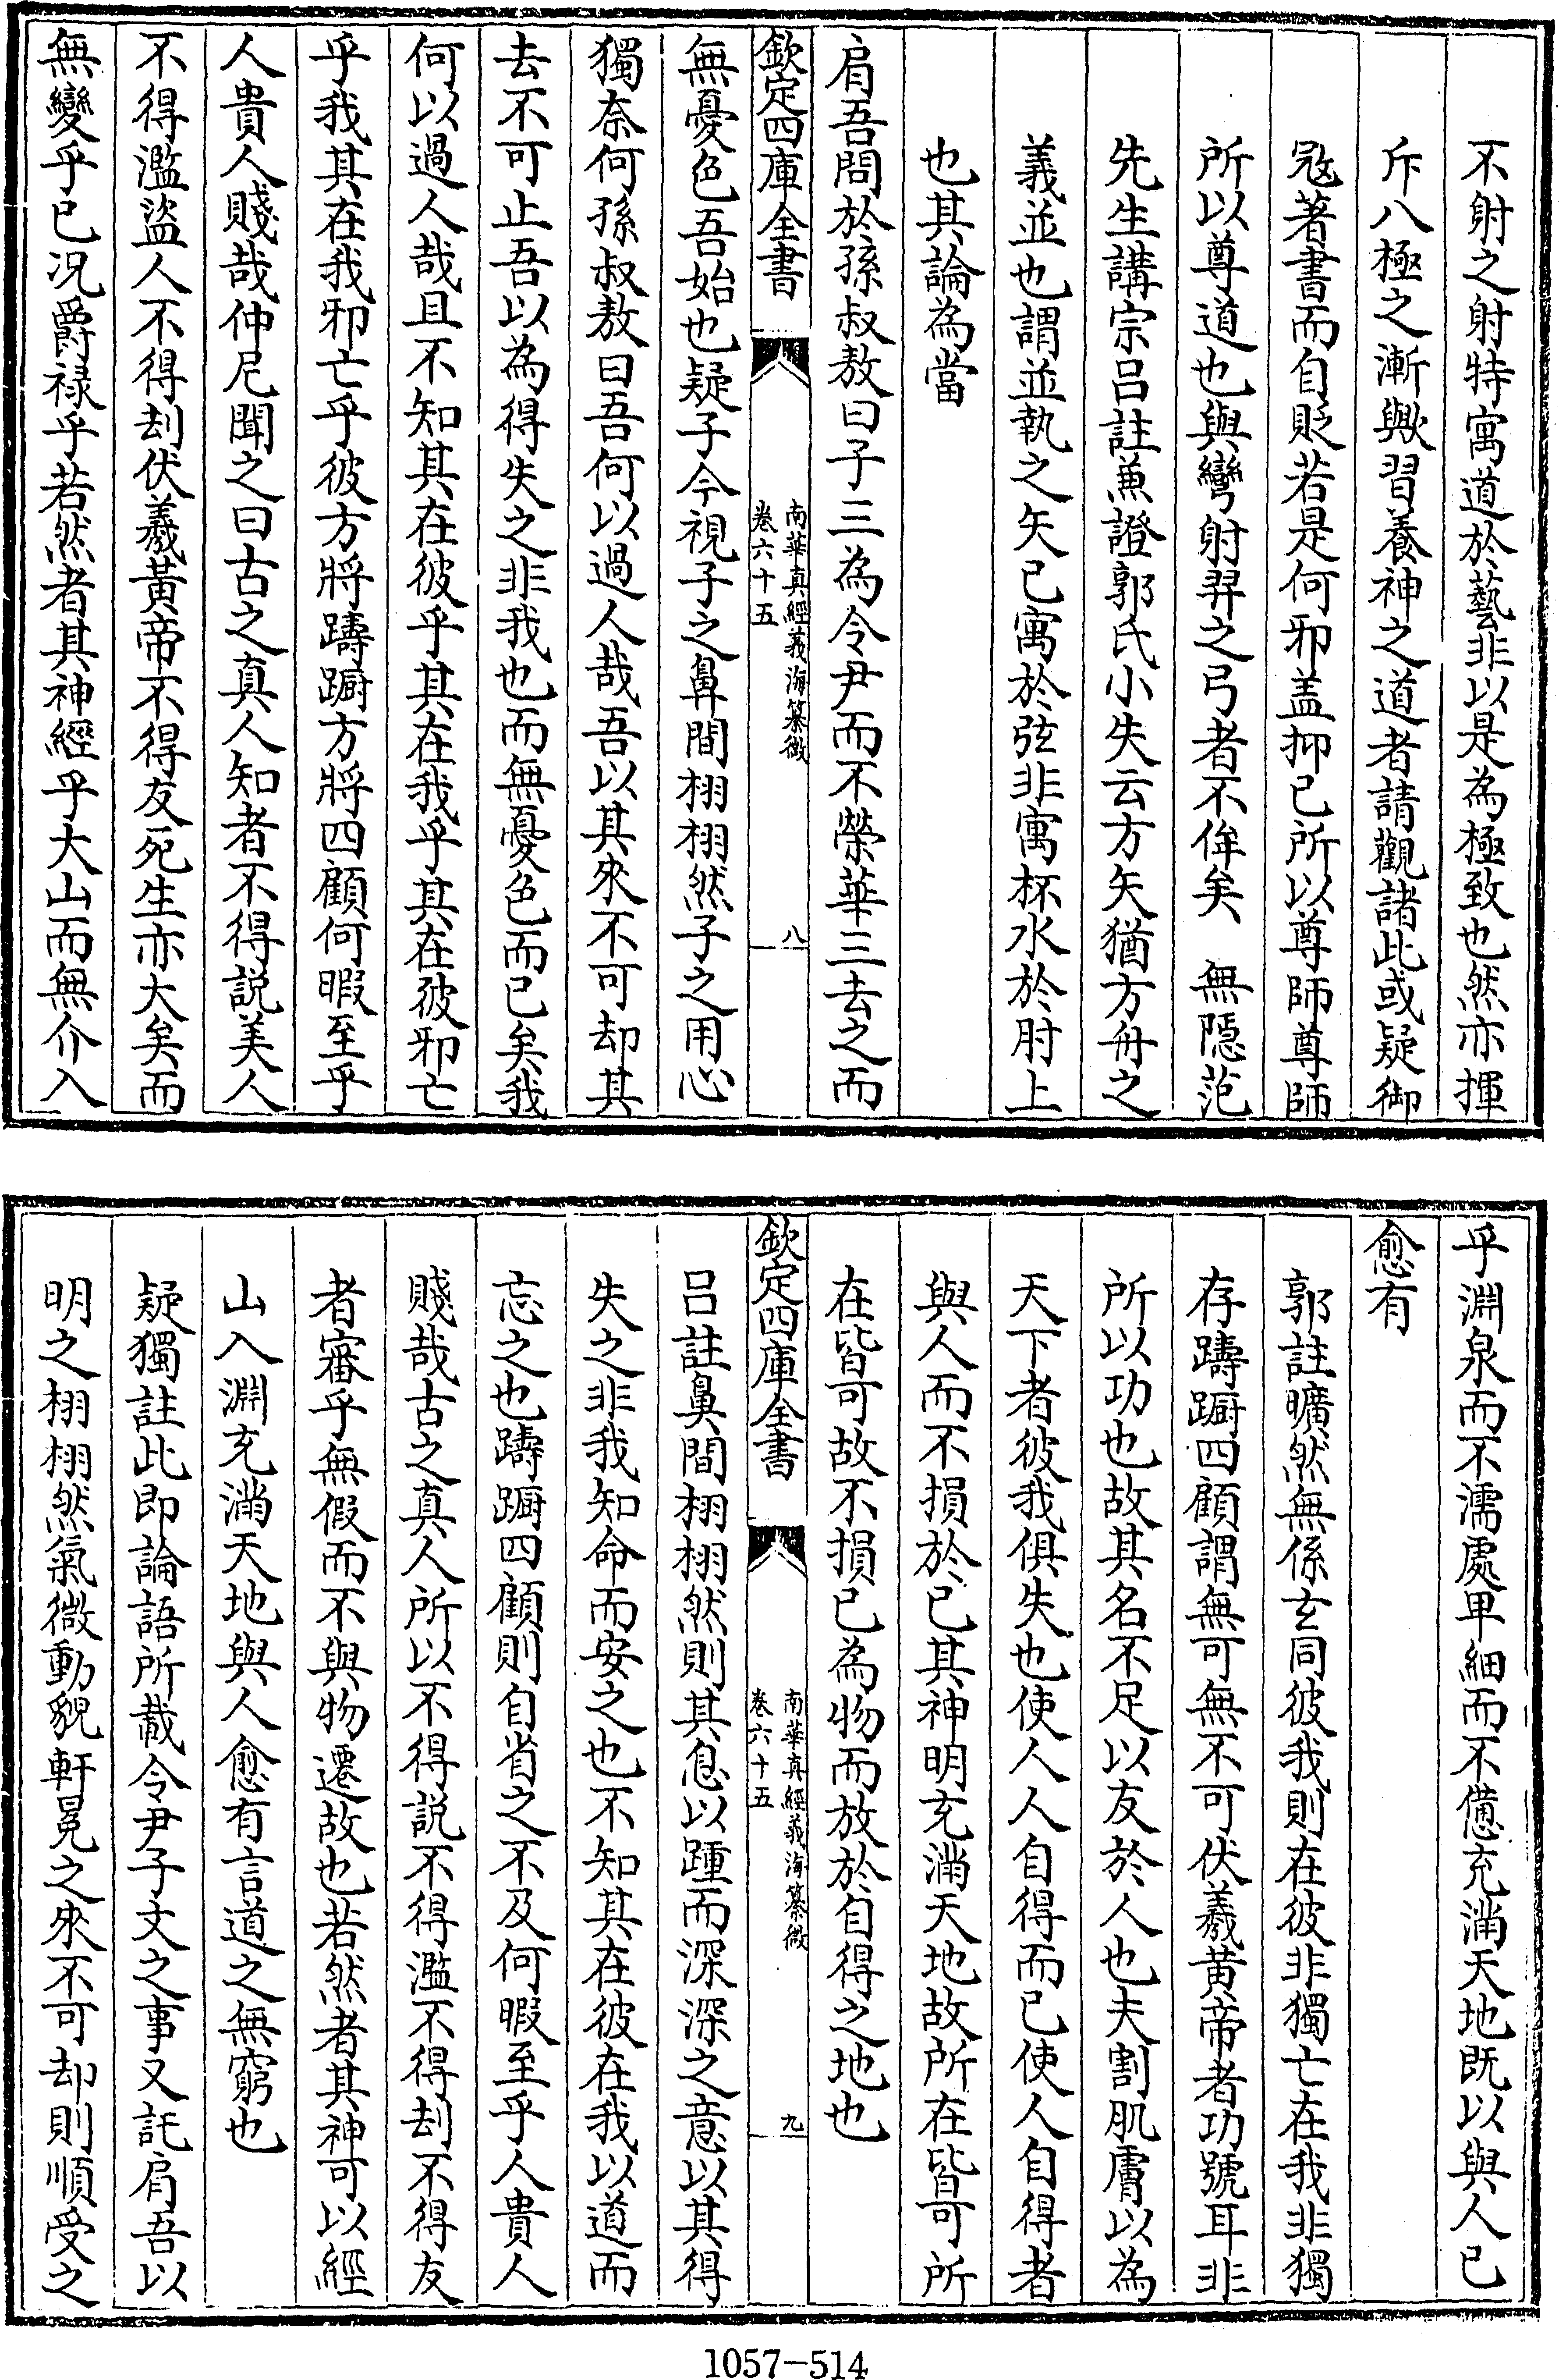 不射之射特寓道於藝非以是為極致也然亦揮
斥八極之漸歟習養神之道者請觀諸此或疑御
冦著書而自貶若是何邪盖抑已所以尊師尊師
所以尊道也與彎射羿之弓者不侔矣　無隠范
先生講宗吕註兼證郭氏小失云方矢猶方舟之
義並也謂並執之矢已寓於弦非寓杯水於肘上
也其論為當
肩吾問於孫叔敖曰子三為令尹而不榮華三去之而
欽定四庫全書
南華真經義海纂微
卷六十五
八
無憂色吾始也疑子今視子之鼻間栩栩然子之用心
獨奈何孫叔敖曰吾何以過人哉吾以其來不可却其
去不可止吾以為得失之非我也而無憂色而已矣我
何以過人哉且不知其在彼乎其在我乎其在彼邪亡
乎我其在我邪亡乎彼方將躊躕方將四顧何暇至乎
人貴人賤哉仲尼聞之曰古之真人知者不得説美人
不得濫盜人不得刦伏羲黃帝不得友死生亦大矣而
無變乎已况爵禄乎若然者其神經乎大山而無介入
乎淵泉而不濡處卑細而不憊充滿天地既以與人已
愈有
郭註曠然無係玄同彼我則在彼非獨亡在我非獨
存躊躕四顧謂無可無不可伏羲黃帝者功號耳非
所以功也故其名不足以友於人也夫割肌膚以為
天下者彼我俱失也使人人自得而已使人自得者
與人而不損於已其神明充滿天地故所在皆可所
在皆可故不損已為物而放於自得之地也
欽定四庫全書
南華真經義海纂微
卷六十五
九
吕註鼻間栩栩然則其息以踵而深深之意以其得
失之非我知命而安之也不知其在彼在我以道而
忘之也躊躕四顧則自省之不及何暇至乎人貴人
賤哉古之真人所以不得説不得濫不得刦不得友
者審乎無假而不與物遷故也若然者其神可以經
山入淵充滿天地與人愈有言道之無窮也
疑獨註此即論語所載令尹子文之事又託肩吾以
明之栩栩然氣微動貌軒冕之來不可却則順受之
1057-514